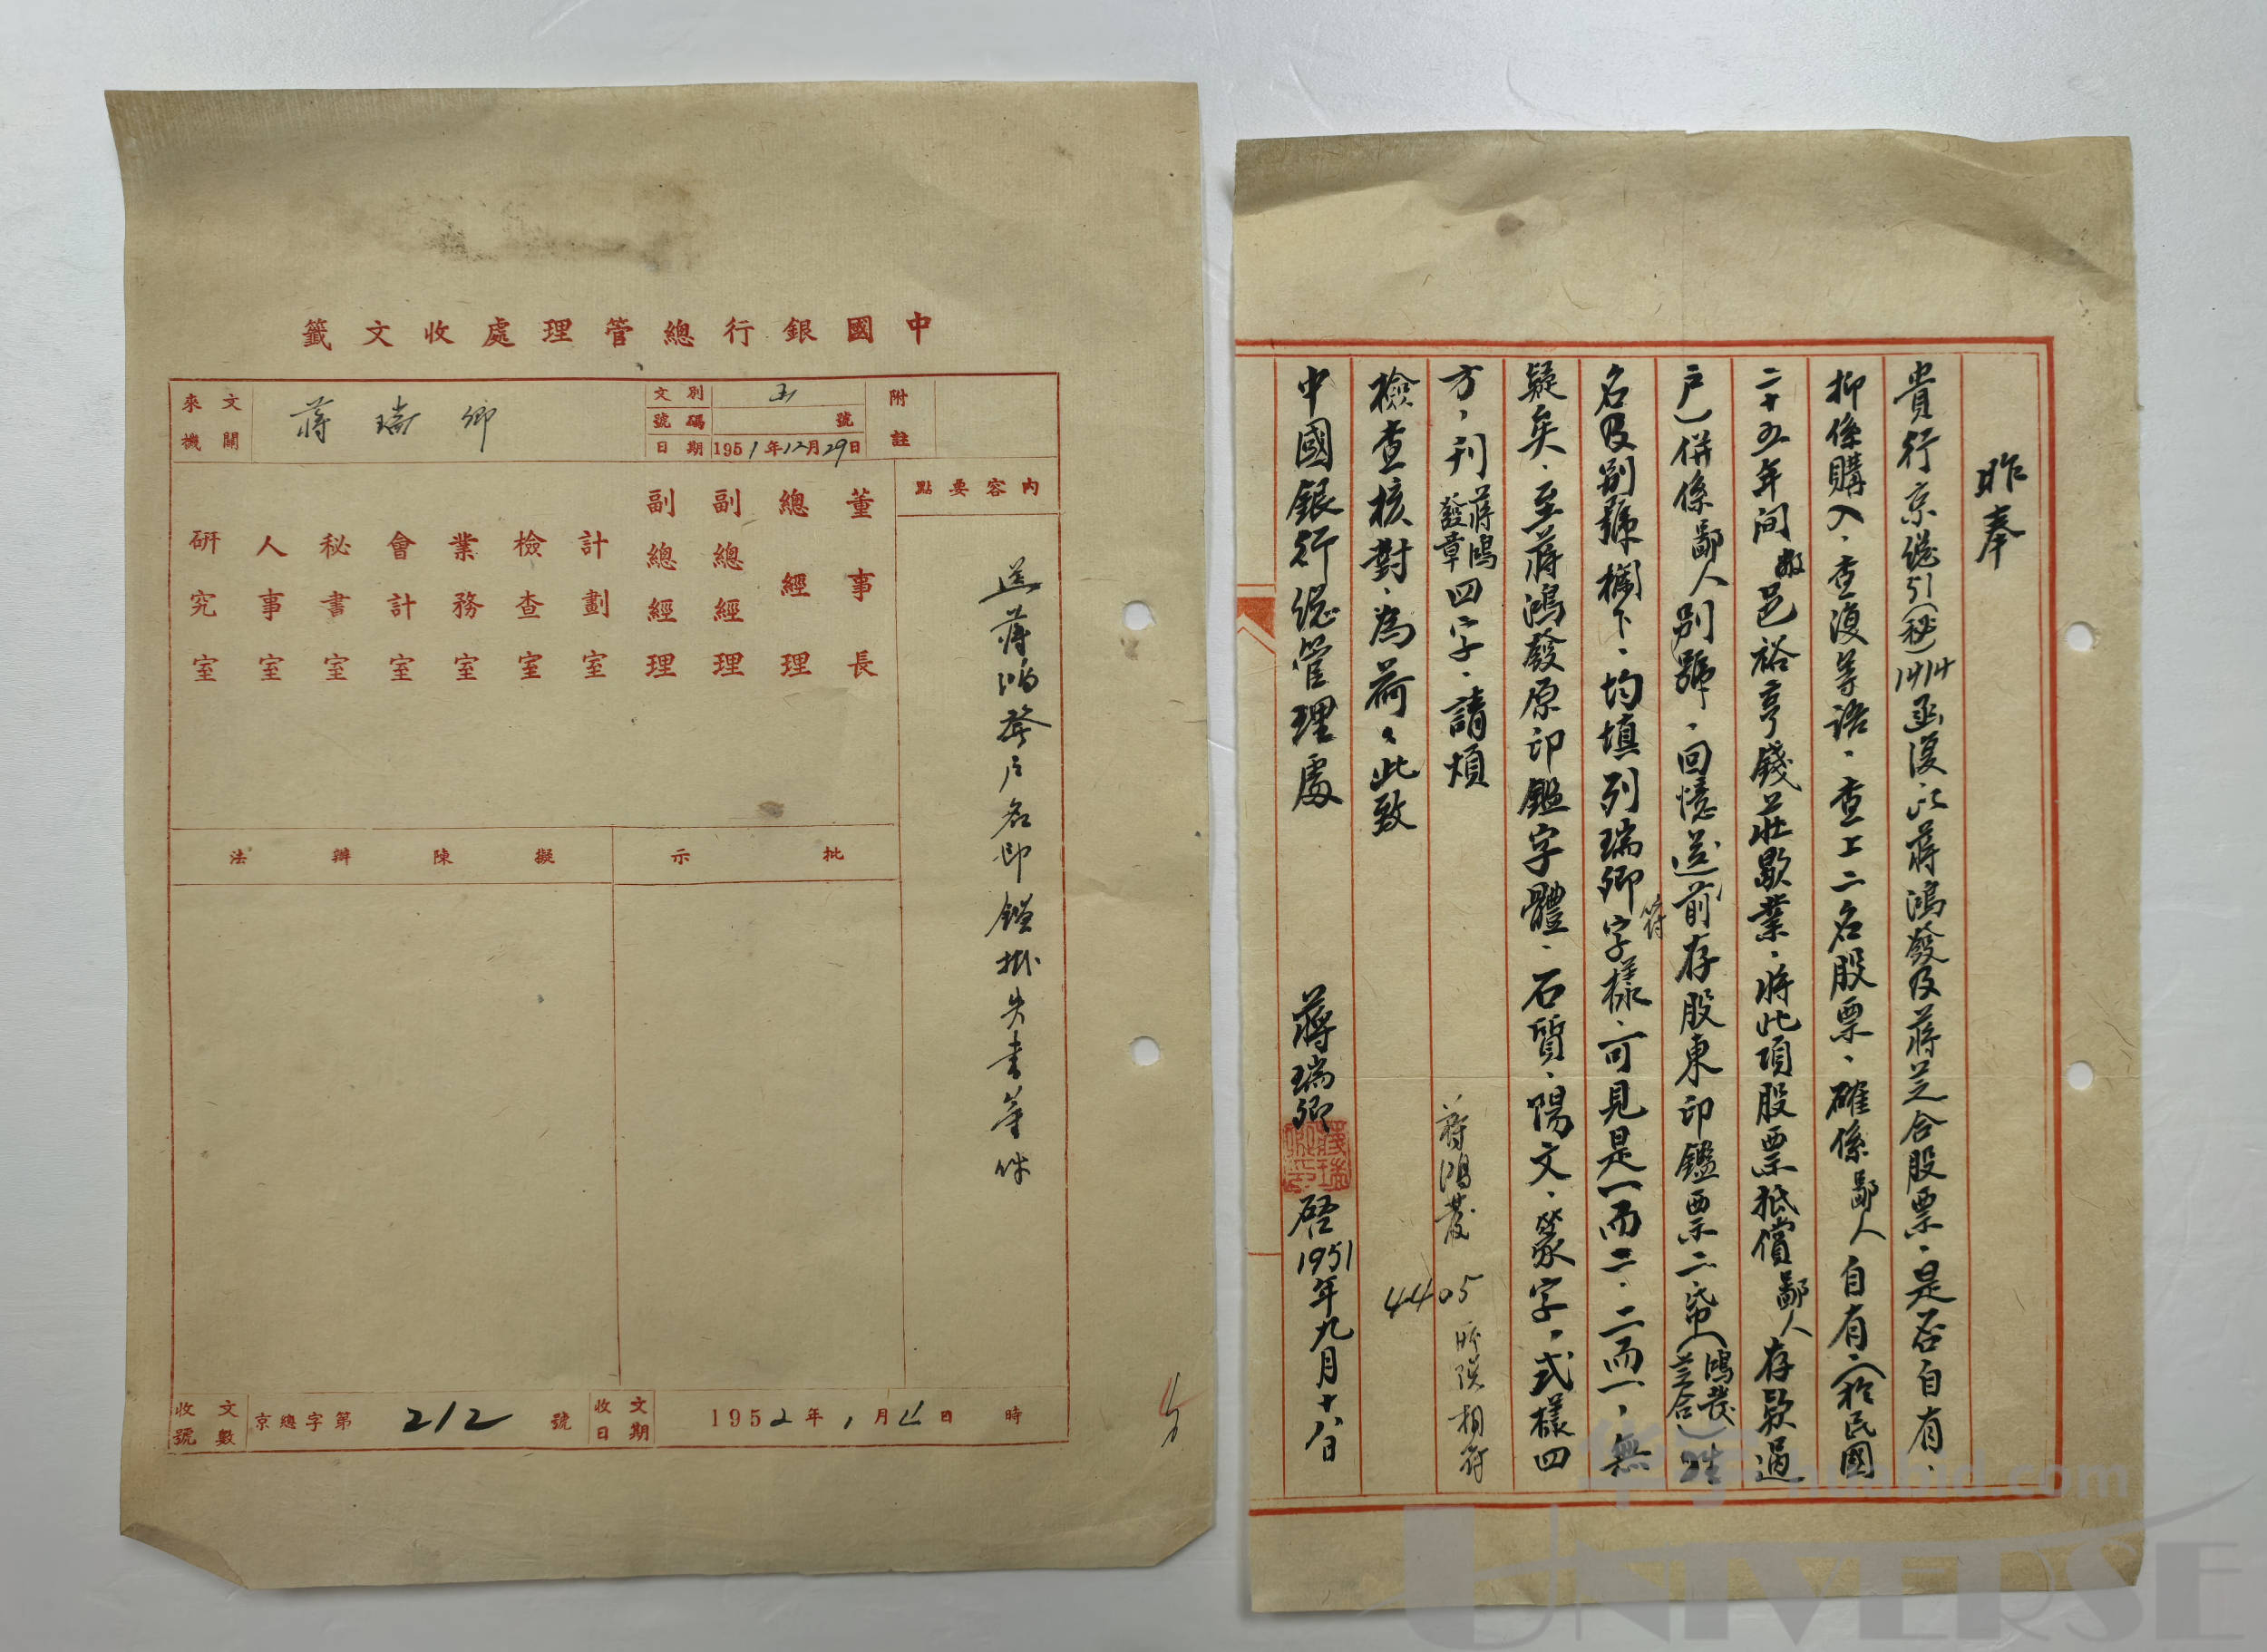 中國銀行總管理處收文籤
來文機關
蔣瑞卿
文別
函
號碼
號
日期
1951年12月29日
附註
內容要點
送蔣鴻發户名印鑑掛失書等件
董事長
總經理
副總經理
副總經理
計劃室
檢查室
業務室
會計室
秘書室
人事室
研究室
批示
擬陳辦法
收文號數
京總字第212號
收文日期
1952年1月 日 時
昨奉
貴行京總51(秘)1414函復以蔣鴻發及蔣芝合股票、是否自有、
抑係購入、查復等語、查上二名股票、確係鄙人自有、(於民國
二十五年间敝邑裕亨錢莊歇業、將此項股票抵償鄙人存款過
户)併係鄙人別號、回憶送前存股東印鑑票二帋(鴻發芝合)姓
名及别號欄下、均填列瑞卿字樣、可見是一而二、二而一、無
符
疑矣、至蔣鴻發原印鑑字體、石質、陽文、篆字、式樣四
方、刊蔣鴻發章四字、請煩
檢查核對、為荷、此致
蔣鴻發
4405
相符
中國銀行總管理處
蔣瑞卿
啓1951年九月十八日
huabid.com
UNIVERSE